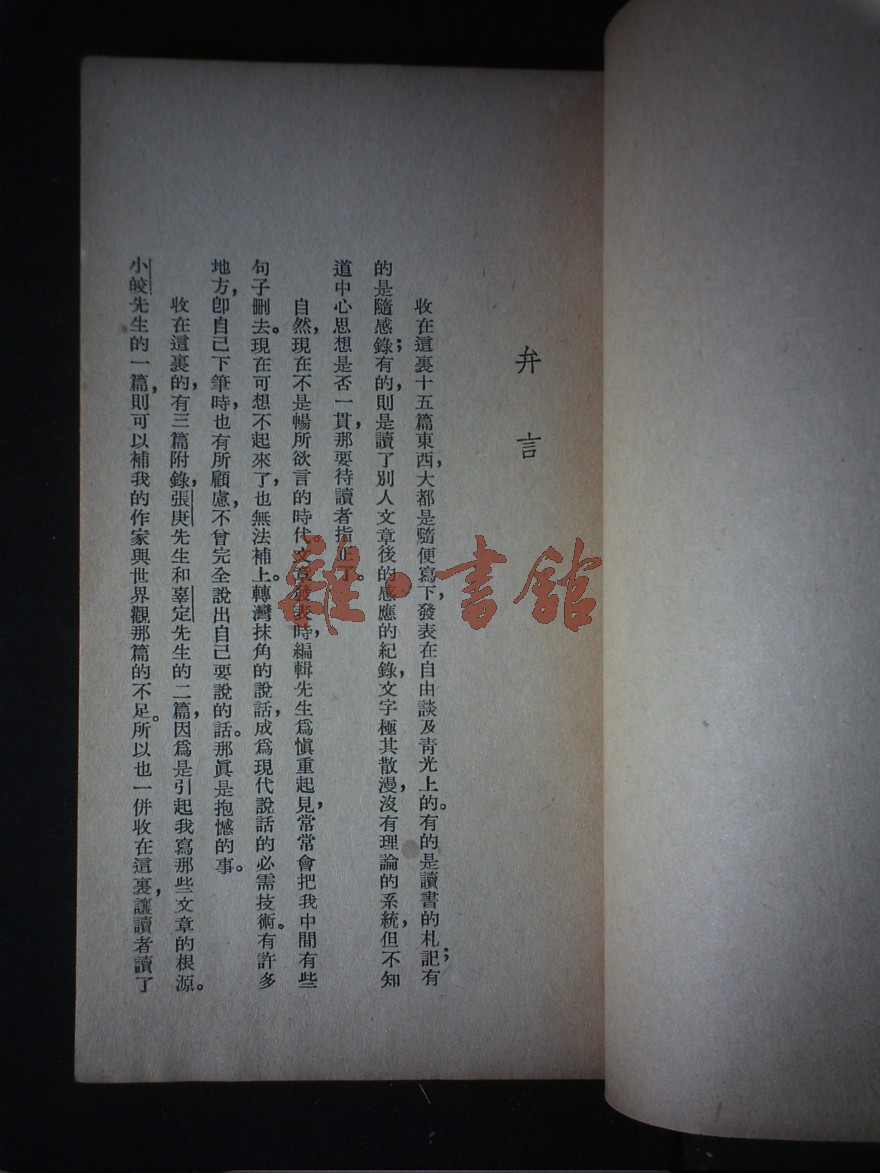 弁言
收在這裏十五篇東西，大都是隨便寫下，發表在自由談及靑光上的。有的是讀書的札記；有
的是隨感錄；有的，則是讀了別人文章後的感應的紀錄，文字極其散漫，沒有理論的系統，但不知
道中心思想是否一貫，那要待讀者指正了。
自然，現在不是暢所欲言的時代。文章發表時，編輯先生爲愼重起見，常常會把我中間有些
句子刪去。現在可想不起來了，也無法補上。轉灣抹角的說話，成爲現代說話的必需技術。有許多
地方，卽自己下筆時，也有所顧慮，不曾完全說出自己要說的話。那眞是抱憾的事。
收在這裏的，有三篇附錄，張庚先生和辜定先生的二篇，因爲是引起我寫那些文章的根源。
小皎先生的一篇，則可以補我的作家與世界觀那篇的不足。所以也一併收在這裏，讓讀者讀了
雜·書館